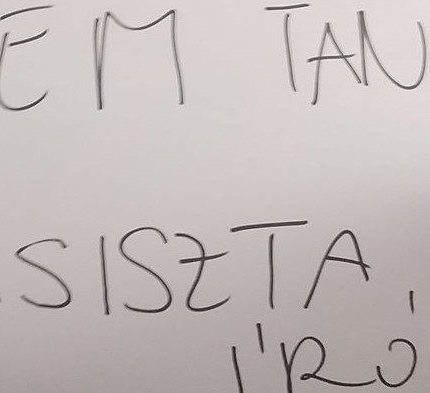 EM TAN
SISZTA,
ÍRÓ